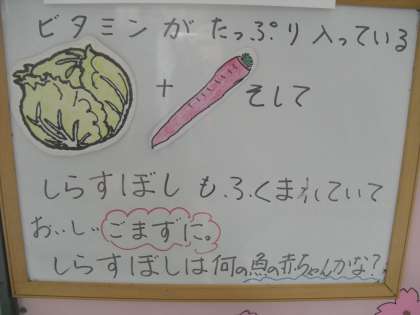 ビタミンが たっぷり 入っている
+ そして
しらすぼし も ふくまれていて
おいしい ごまずに。
しらすぼしは何の魚の赤ちゃんかな?